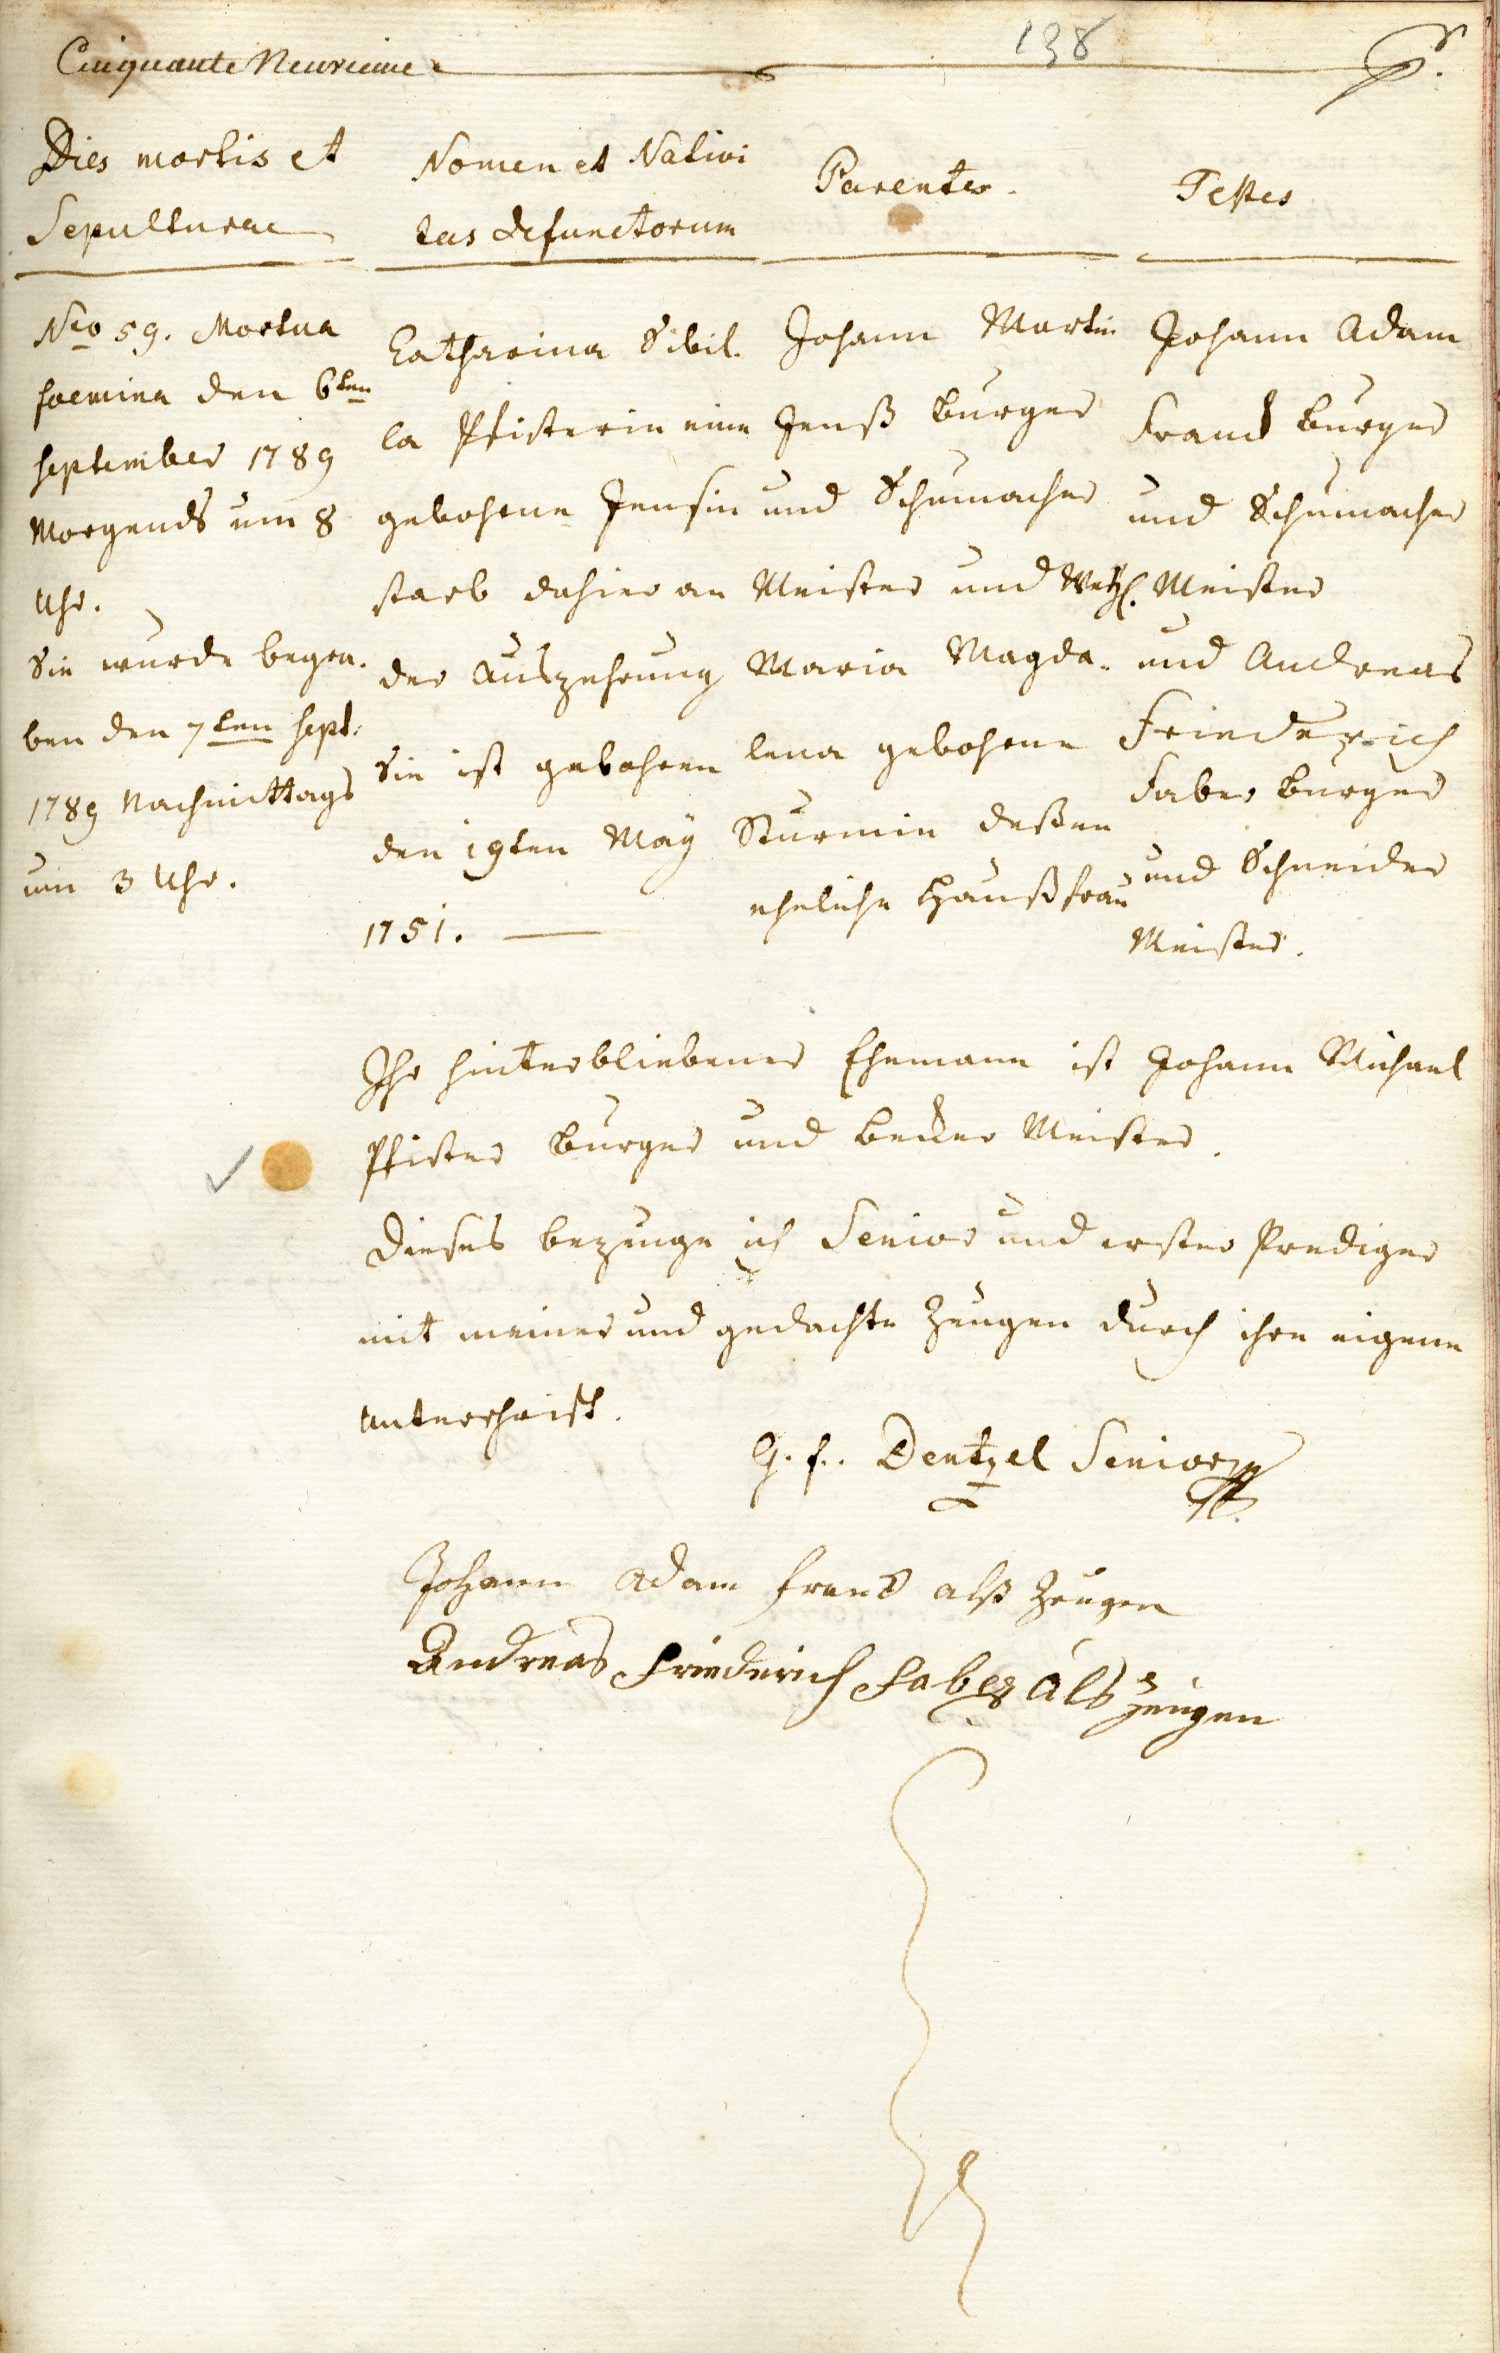 138
Cinquante Neuvieme
Dies mortis et
Sepulturae
Nro 59. Mortua
foemina den 6ten
september 1789
Morgends um 8
Uhr.
Sie wurde begra-
ben den 7ten sept:
1789 Nachmittags
um 3 Uhr.
Nomen et Nativi
tas defunctorum
Catharina Sibil-
la Pfisterin eine
gebohrne Jensin
starb dahier an
der Auszehrung
Sie ist gebohren
den 19ten Maÿ
1751.
Parentes.
Johann Martin
Jenß burger
und Schumacher
Meister und
Maria Magda-
lena gebohrne
Sturmin deßen
eheliche Haußfrau
Testes
Johann Adam
Franck burger
und Schumacher
Meister
und Andreas
Friederich
Faber burger
und Schneider
Meister.
Ihr hinterbliebener Ehemann ist Johann Michael
Pfister burger und becker Meister.
Dieses bezeuge ich Senior und erster Prediger
mit meiner und gedachte Zeugen durch ihre eigene
Unterschrift.
G. f. Dentzel Senior
Johann Adam franck alß Zeugen
Andreas Friederich Faber als zeugen